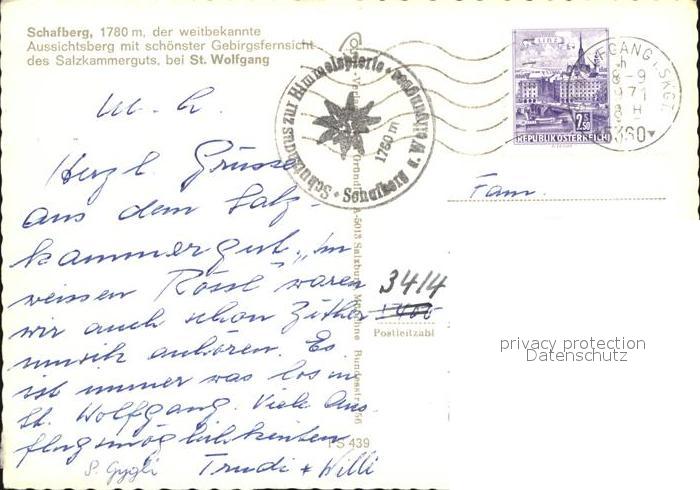 Schafberg, 1780 m, der weitbekannte
Aussichtsberg mit schönster Gebirgsfernsicht
des Salzkammerguts, bei St. Wolfgang
Schutzhaus zur Himmelspforte
Schafberg
1780 m
LINZ
2.50
REPUBLIK ÖSTERREICH
WOLFGANG I. SKGT.
8-9
971
5360
M. L.
Herzl. Grüsse
aus dem Salz-
kammergut. „Im
weissen Rössl" waren
wir auch schon Zither
musik anhören. Es
ist immer was los in
St. Wolfgang. Viele Aus-
flugsmöglichkeiten
Trudi + Willi
S. Gygli
Fam.
3414
1400
Postleitzahl
A-5013 Salzburg
Bundesstr. 56
S 439
privacy protection
Datenschutz